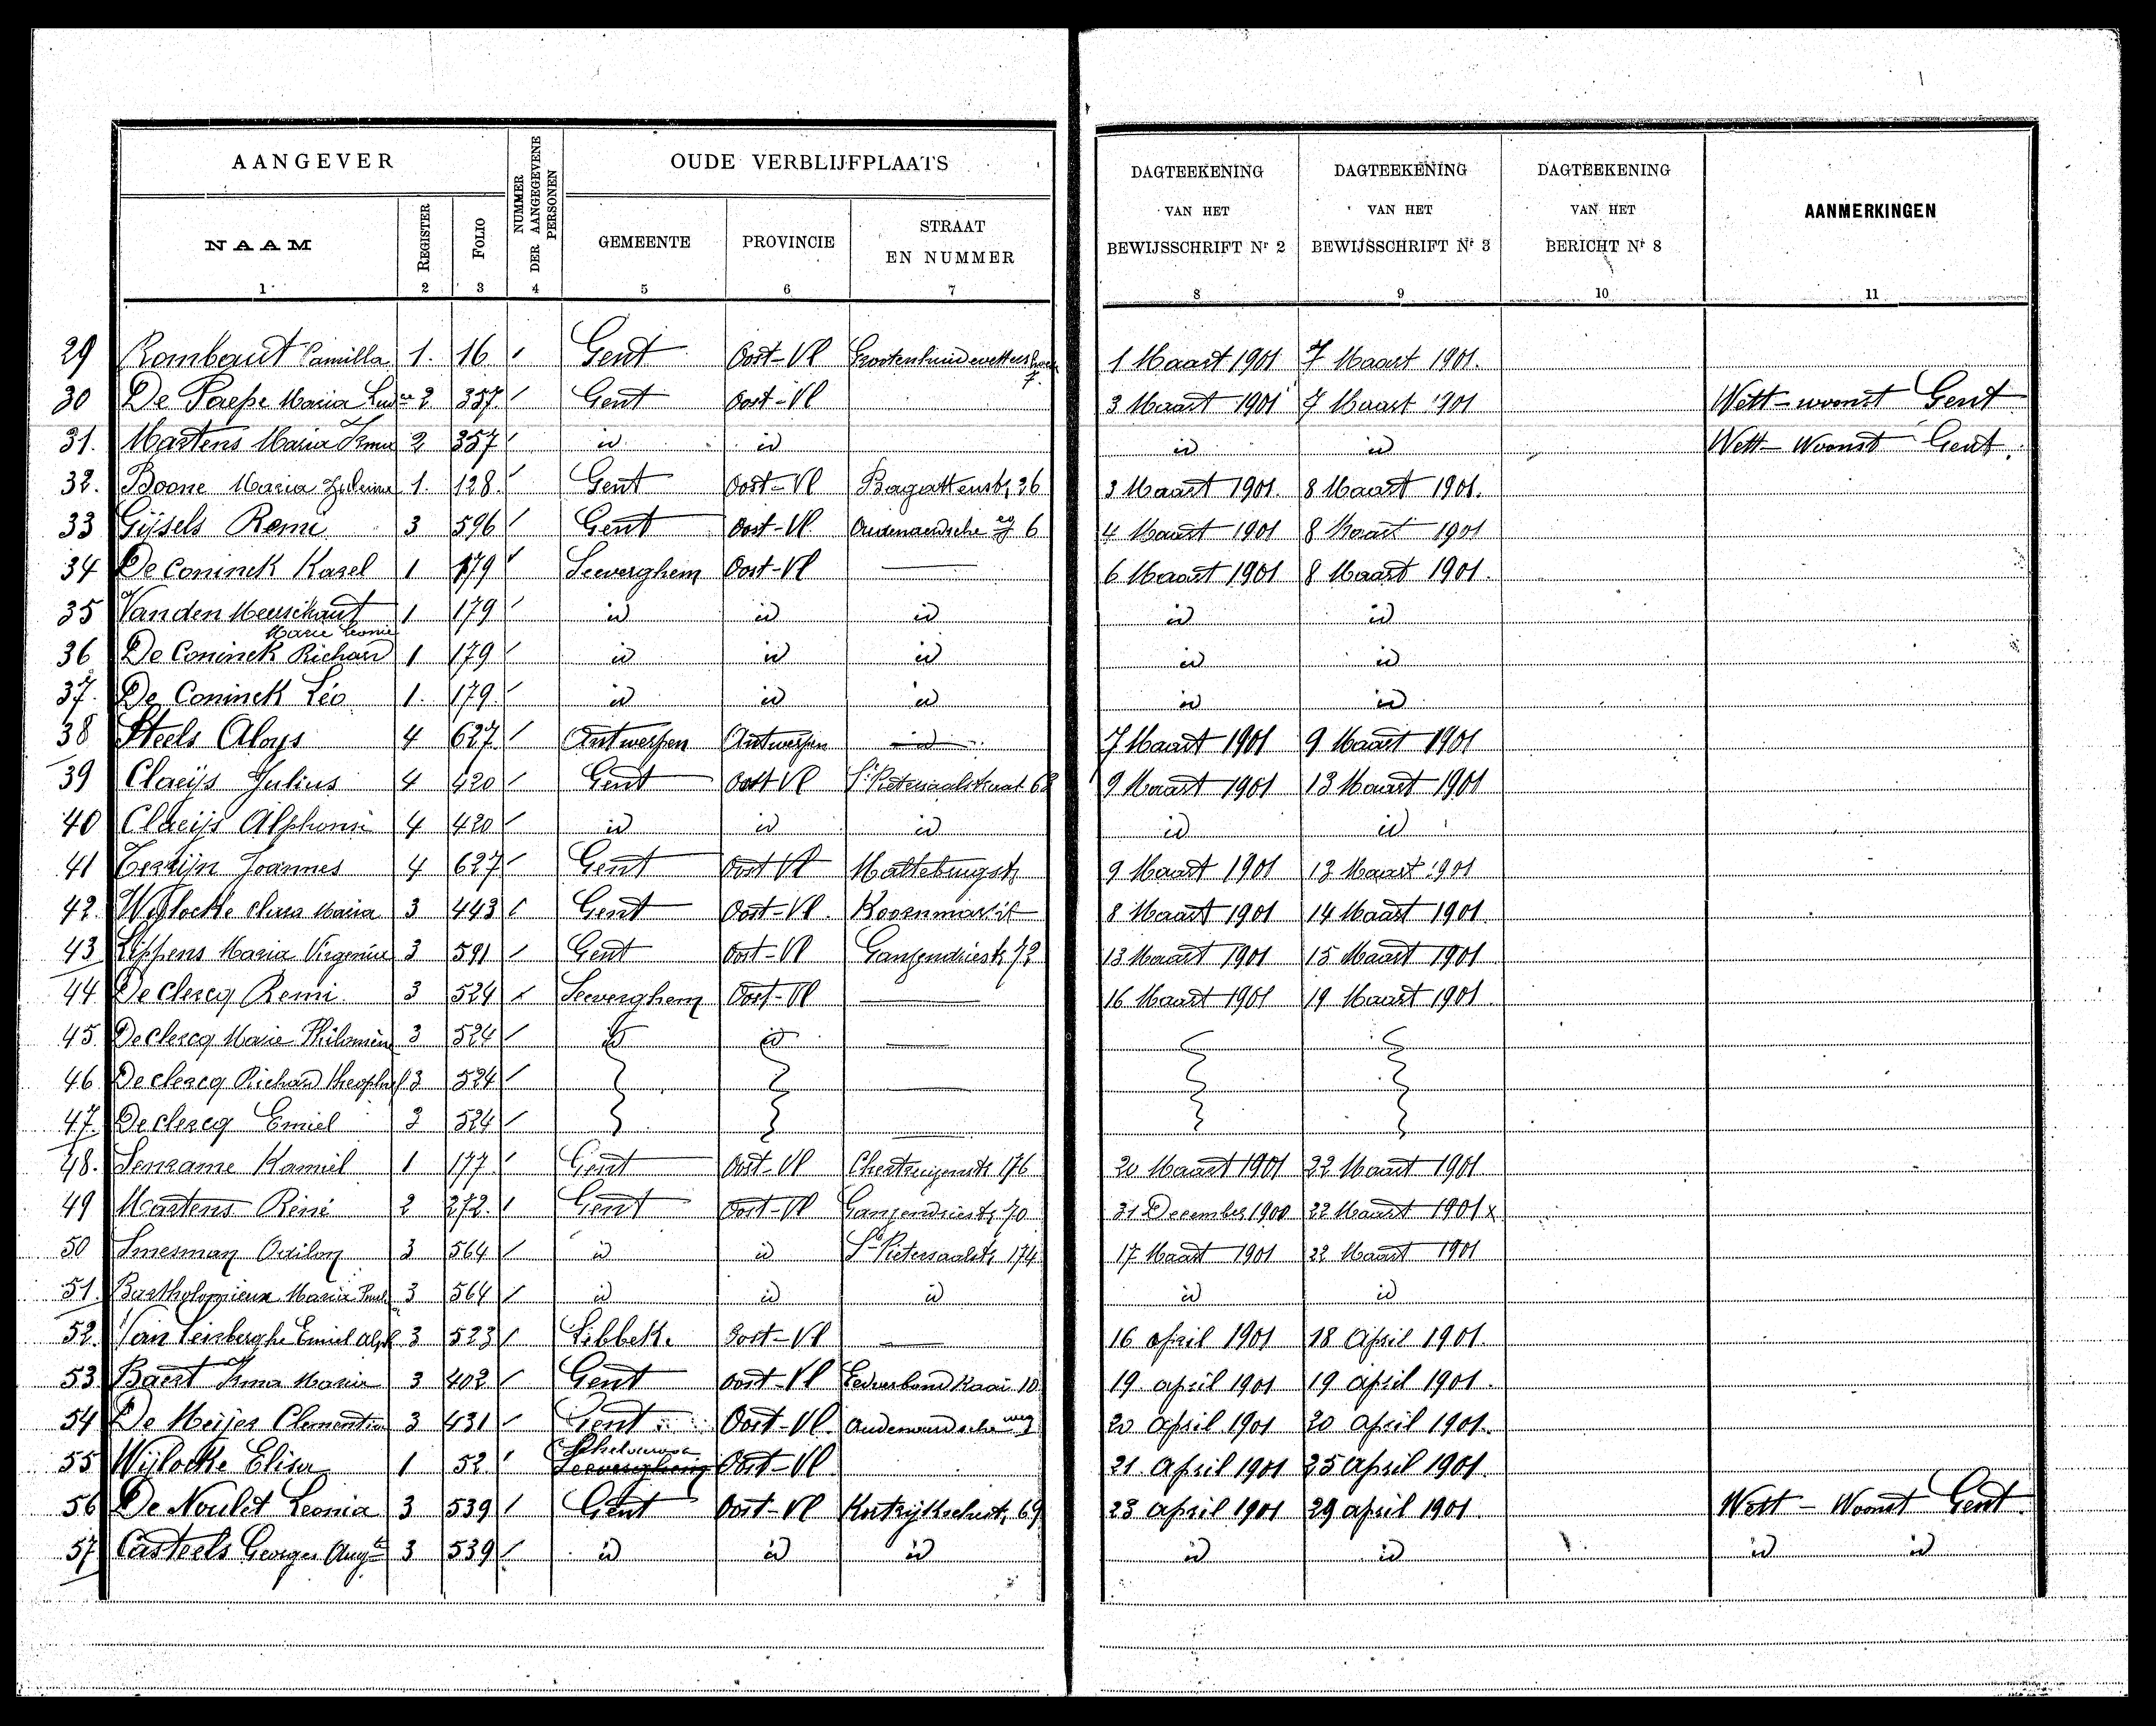 AANGEVER
NUMMER DER AANGEGEVENE PERSONEN
OUDE VERBLIJFPLAATS
DAGTEEKENING VAN HET BEWIJSSCHRIFT Nr 2
DAGTEEKENING VAN HET BEWIJSSCHRIFT Nr 3
DAGTEEKENING VAN HET BERICHT Nr 8
AANMERKINGEN
NAAM REGISTER FOLIO GEMEENTE PROVINCIE STRAAT EN NUMMER
1 2 3 4 5 6 7 8 9 10 11
29 Rombaut Camilla 1. 16 / Gent Oost-Vl 7. 1 Maart 1901 7 Maart 1901.
30 De Paepe Maria 2 357 / Gent Oost-Vl 3 Maart 1901 7 Maart 1901 Wett-woonst Gent
31. Martens Maria Irma 2 357 / id id id id Wett-Woonst Gent.
32. Boone Maria 1. 128. / Gent Oost-Vl Bagattenstr, 36 3 Maart 1901. 8 Maart 1901.
33 Gijsels Remi 3 596 / Gent Oost-Vl. Oudenaerdsche 6 4 Maart 1901 8 Maart 1901
34 De Coninck Karel 1 179 / Seeverghem Oost-Vl — 6 Maart 1901 8 Maart 1901.
35 Van den Meerschaut Marie Leonie 1 179 / id id id id id
36 De Coninck Richard 1 179 / id id id id id
37. De Coninck Léo 1. 179. / id id id id id
38 Steels Aloys 4 627. / Antwerpen Antwerpen id 7 Maart 1901 9 Maart 1901
39 Claeijs Julius 4 420 / Gent Oost Vl St Pietersaalstraat 68 9 Maart 1901 13 Maart 1901
40 Claeijs Alphonse 4 420 / id id id id id
41 Terrijn Joannes 4 627 / Gent Oost Vl 9 Maart 1901 13 Maart 1901
42. Wijlocke Maria 3 443 / Gent Oost-Vl. Koornmarkt 8 Maart 1901 14 Maart 1901.
43 Lippens Maria Virginia 3 591 / Gent Oost-Vl Ganzendriestr 72 13 Maart 1901 15 Maart 1901
44 De Clercq Remi 3 524 / Seeverghem Oost-Vl — 16 Maart 1901 19 Maart 1901.
45. De Clercq Marie Philomène 3 524 / id id —
46 De Clercq Richard Theophiel 3 524 / —
47. De Clercq Emiel 3 524 / —
48. Senrame Kamiel 1 177 / Gent Oost-Vl 176 20 Maart 1901 22 Maart 1901
49 Martens René 2 272. / Gent Oost-Vl Ganzendriestr, 70 31 December 1900 22 Maart 1901 x
50 Smesman Odilon 3 564 / id id St Pietersaalstr, 174 17 Maart 1901 22 Maart 1901
51. Bartholomieux Maria 3 564 / id id id id id
52. Van Leirberghe Emiel Alph 3 523 / Libbeke Oost-Vl — 16 April 1901 18 April 1901.
53 Baert Irma Maria 3 402 / Gent Oost-Vl Kaai 10 19 april 1901 19 april 1901.
54 De Meijer Clementina 3 431 / Gent Oost-Vl. Oudenaardsche weg 20 April 1901 20 april 1901.
55 Wijlocke Elisa 1 52 / Seeverghem Oost-Vl 21 April 1901 25 April 1901.
56 De Noulet Leonia 3 539 / Gent Oost-Vl Kortrijkschestr, 69 23 april 1901 29 april 1901. Wett-Woonst Gent.
57 Casteels Georges Augte 3 539 / id id id id id id id